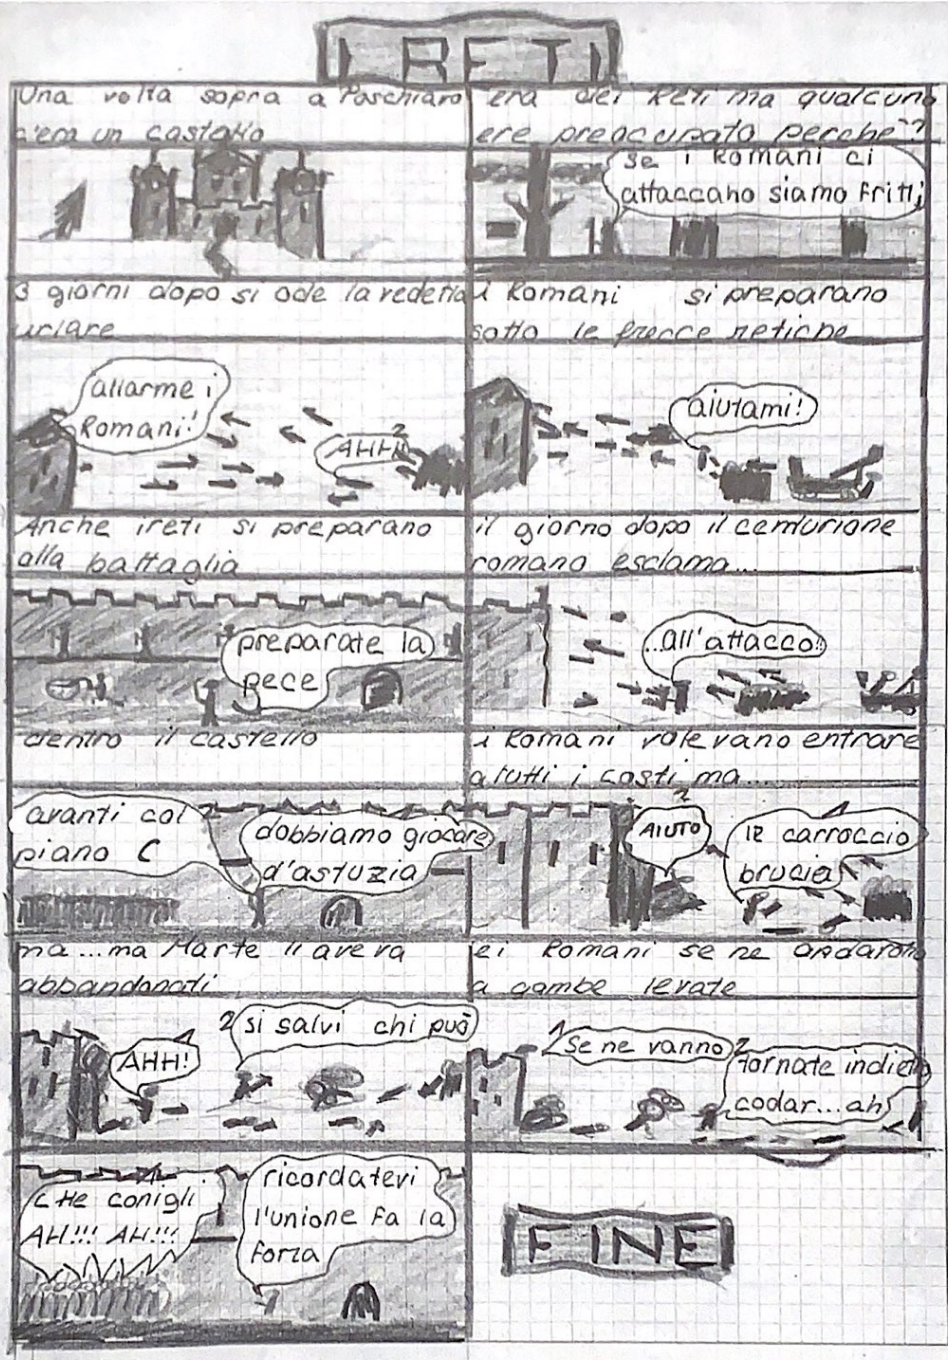 I RETI
Una volta sopra a Poschiavo
c'era un castello
era dei Reti ma qualcuno
ere preoccupato perche??
se i Romani ci
attaccano siamo fritti
3 giorni dopo si ode la vedetta
urlare
allarme i
Romani!
AHH
2
i Romani si preparano
sotto le frecce retiche
aiutami!
Anche i reti si preparano
alla battaglia
preparate la
pece
il giorno dopo il centurione
romano esclama...
...all'attacco!!
dentro il castello
avanti col
piano C
dobbiamo giocare
d'astuzia
i Romani volevano entrare
a tutti i costi ma......
2
AIUTO
1
IL carroccio
brucia
ma...ma Marte li aveva
abbandonati
1
AHH!
2
si salvi chi può
ei Romani se ne andarono
a gambe levate
1
se ne vanno
2
tornate indietro
codar...ah
CHE conigli
AH!!! AH!!!
ricordatevi
l'unione fa la
forza
FINE